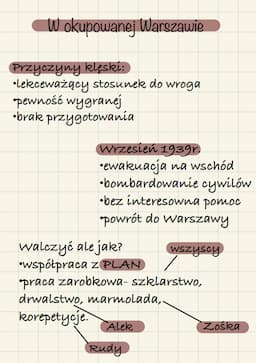 W okupowanej Warszawie
Przyczyny klęski:
•lekceważący stosunek do wroga
•pewność wygranej
•brak przygotowania
Wrzesień 1939r.
•ewakuacja na wschód
•bombardowanie cywilów
•bez interesowna pomoc
•powrót do Warszawy
Walczyć ale jak?
wszyscy
•współpraca z PLAN
•praca zarobkowa- szklarstwo,
drwalstwo, marmolada,
korepetycje.
Alek
Zośka
Rudy